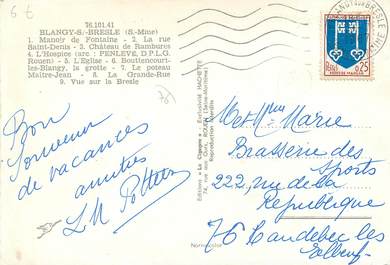 6€
76.101.41
BLANGY-S.-BRESLE (S.-Mme)
1. Manoir de Fontaine - 2. La rue
Saint-Denis - 3. Château de Rambures
4. L'Hospice (arc : PENLEVÉ, D.P.L.G.
Rouen) - 5. L'Eglise - 6. Bouttencourt-
les-Blangy, la grotte - 7. Le poteau
Maître-Jean - 8. La Grande-Rue
9. Vue sur la Bresle
Bon
Souvenir
de vacances
amitiés
Editions « La Cigogne » - Exclusivité HACHETTE
74, rue aux Ours, ROUEN (Seine-Maritime)
Normicolor
BLANGY SUR BRESLE
0,25
MONT-DE-MARSAN
Mr et Mme Marie
Brasserie des
Sports
222, rue de la
République
76 Caudebec les
Elbeuf